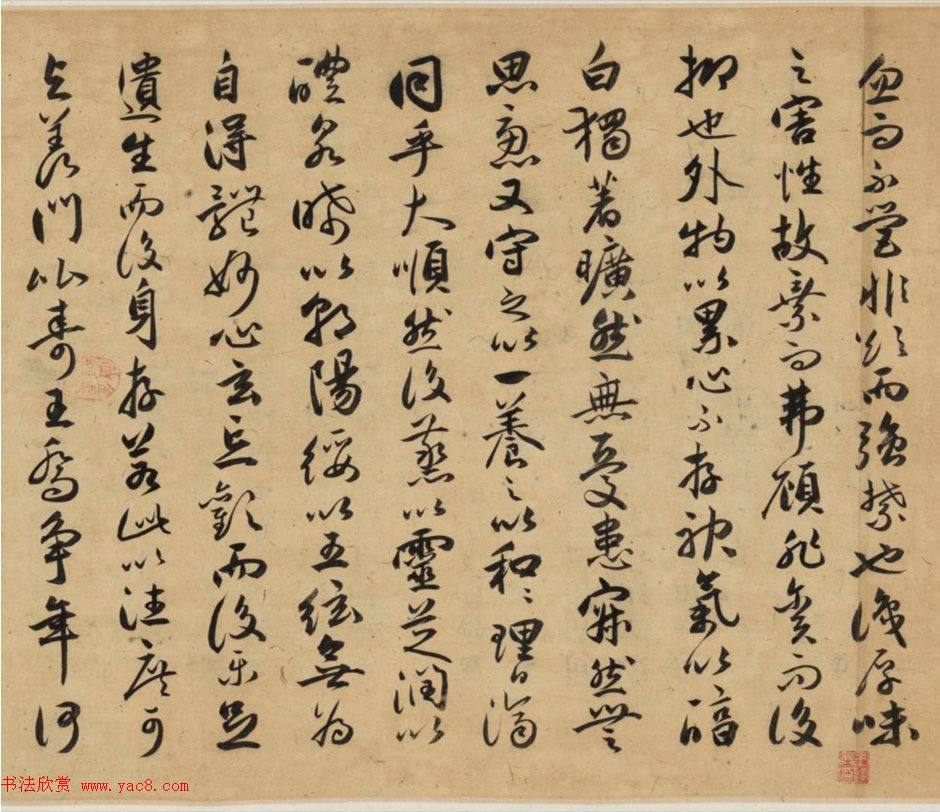 忽而不營非欲而強禁也識厚味
之害性故棄而弗顧非貪而後
抑也外物以累心不存神氣以醇
白獨著曠然無憂患寂然無
思慮又守之以一養之以和々理日濟
同乎大順然後蒸以靈芝潤以
醴泉晞以朝陽綏以五絃無為
自得體妙心玄忘歡而後樂足
遺生而後身存若此以往庶可
與羨門比壽王喬爭年何
书法欣赏 www.yac8.com